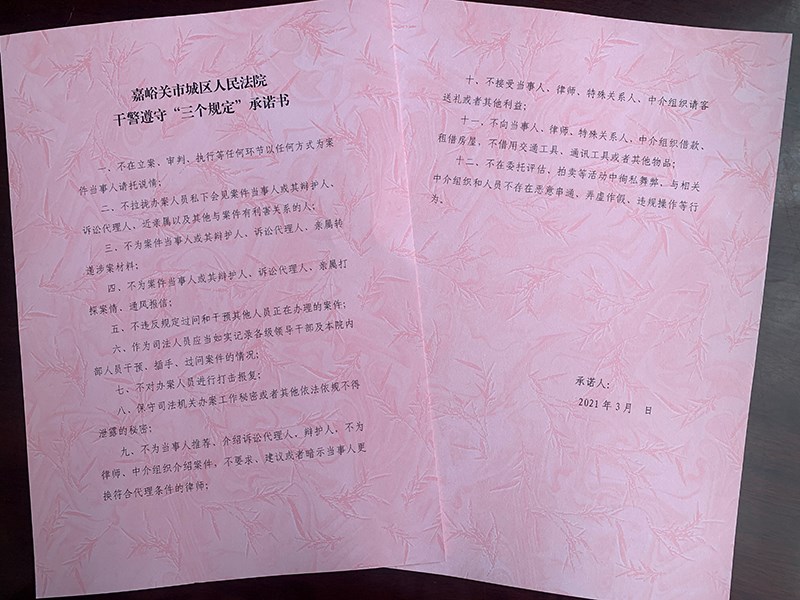 嘉峪关市城区人民法院
干警遵守“三个规定”承诺书
一、不在立案、审判、执行等任何环节以任何方式为案
件当事人请托说情；
二、不拉拢办案人员私下会见案件当事人或其辩护人、
诉讼代理人、近亲属以及其他与案件有利害关系的人；
三、不为案件当事人或其辩护人、诉讼代理人、亲属转
递涉案材料；
四、不为案件当事人或其辩护人、诉讼代理人、亲属打
探案情、通风报信；
五、不违反规定过问和干预其他人员正在办理的案件；
六、作为司法人员应当如实记录各级领导干部及本院内
部人员干预、插手、过问案件的情况；
七、不对办案人员进行打击报复；
八、保守司法机关办案工作秘密或者其他依法依规不得
泄露的秘密；
九、不为当事人推荐、介绍诉讼代理人、辩护人，不为
律师、中介组织介绍案件，不要求、建议或者暗示当事人更
换符合代理条件的律师；
十、不接受当事人、律师、特殊关系人、中介组织请客
送礼或者其他利益；
十一、不向当事人、律师、特殊关系人、中介组织借款、
租借房屋，不借用交通工具、通讯工具或者其他物品；
十二、不在委托评估、拍卖等活动中徇私舞弊，与相关
中介组织和人员不存在恶意串通、弄虚作假、违规操作等行
为。
承诺人：
2021年3月 日